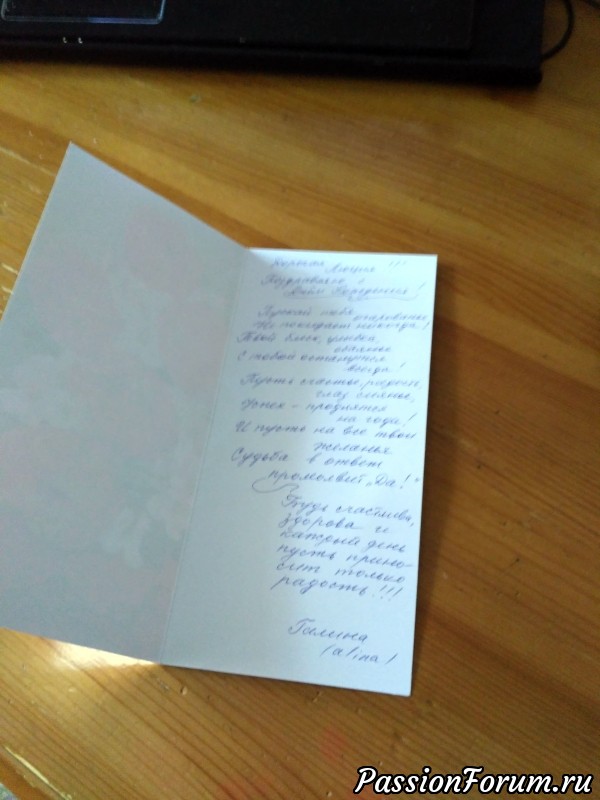 Дорогая !!!
Люция
Поздравляю с
Днём Рождения!
Пускай тебя очарованье
Не покидает никогда!
Твой блеск, улыбка,
обаянье
С тобой останутся
всегда!
Пусть счастье, радость,
глаз сиянье,
Успех - продлятся
на года!
И пусть на все твои
желанья
Судьба в ответ
промолвит „Да!"
Будь счастлива,
здорова и
каждый день
пусть прино-
сит только
радость!!!
Галина
(alina)
PassionForum.ru